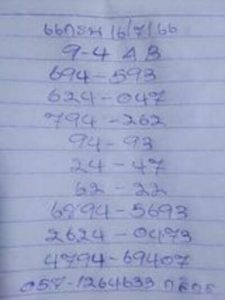 16/7/66
9-4 AB
694-593
624-047
794-262
94-93
24-47
62-22
6894-5693
2624-0473
4794-69407
057-1264633